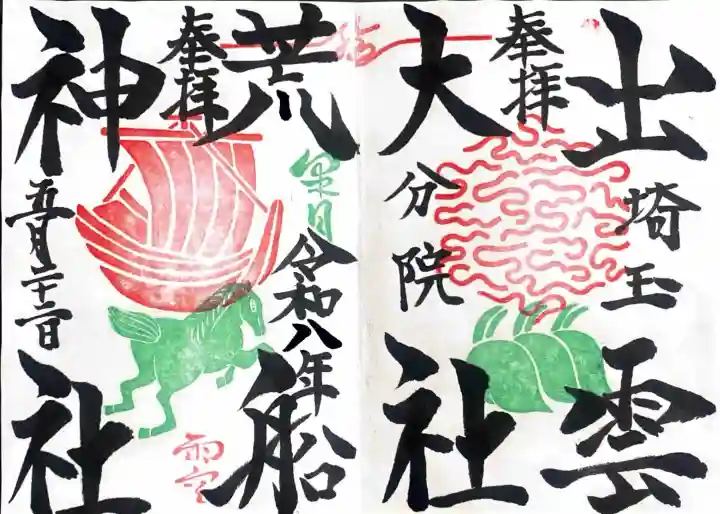 出雲
埼玉
奉拝
大社
分院
荒船
奉拝
皐月
令和八年
神社
五月二十二日
雨空